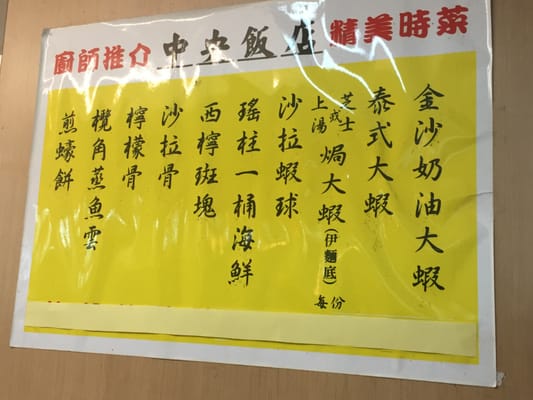 廚師推介 中央飯店 精美時菜
金沙奶油大蝦
泰式大蝦
芝士或上湯焗大蝦(伊麵底)每份
沙拉蝦球
瑤柱一桶海鮮
西檸斑塊
沙拉骨
檸檬骨
欖角蒸魚雲
煎蠔餅